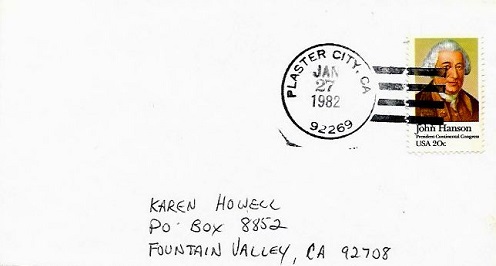 PLASTER CITY, CA
JAN
27
1982
92269
John Hanson
President Continental Congress
USA 20c
KAREN HOWELL
PO BOX 8852
FOUNTAIN VALLEY, CA 92708